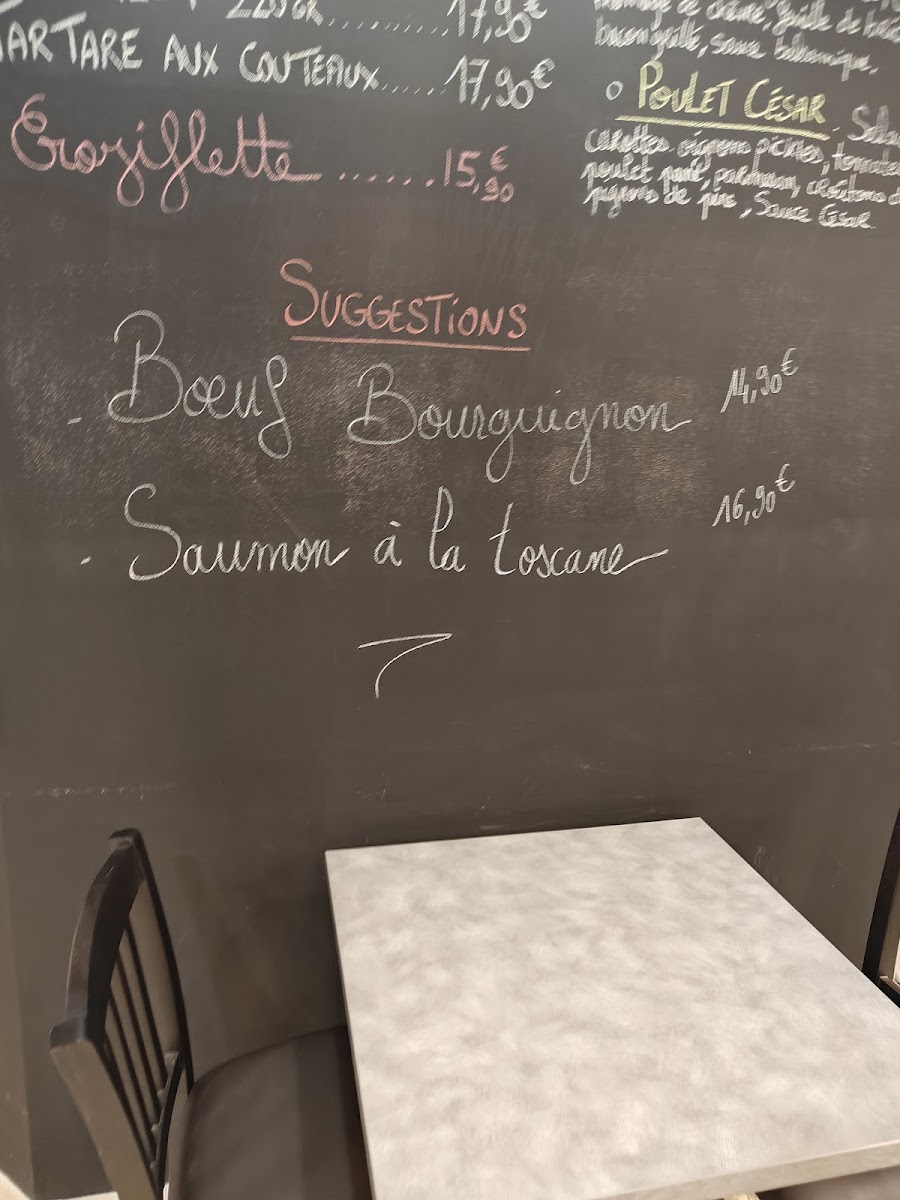 220GR..........17,90€
TARTARE AUX COUTEAUX......17,90€
Croziflette.......15,90€
bacon grillé, sauce balsamique.
o POULET CÉSAR.
carottes, oignons pickles,
poulet pané, parmesan, croûtons
pignons de pin, Sauce César
SUGGESTIONS
- Bœuf Bourguignon 14,90€
- Saumon à la toscane 16,90€